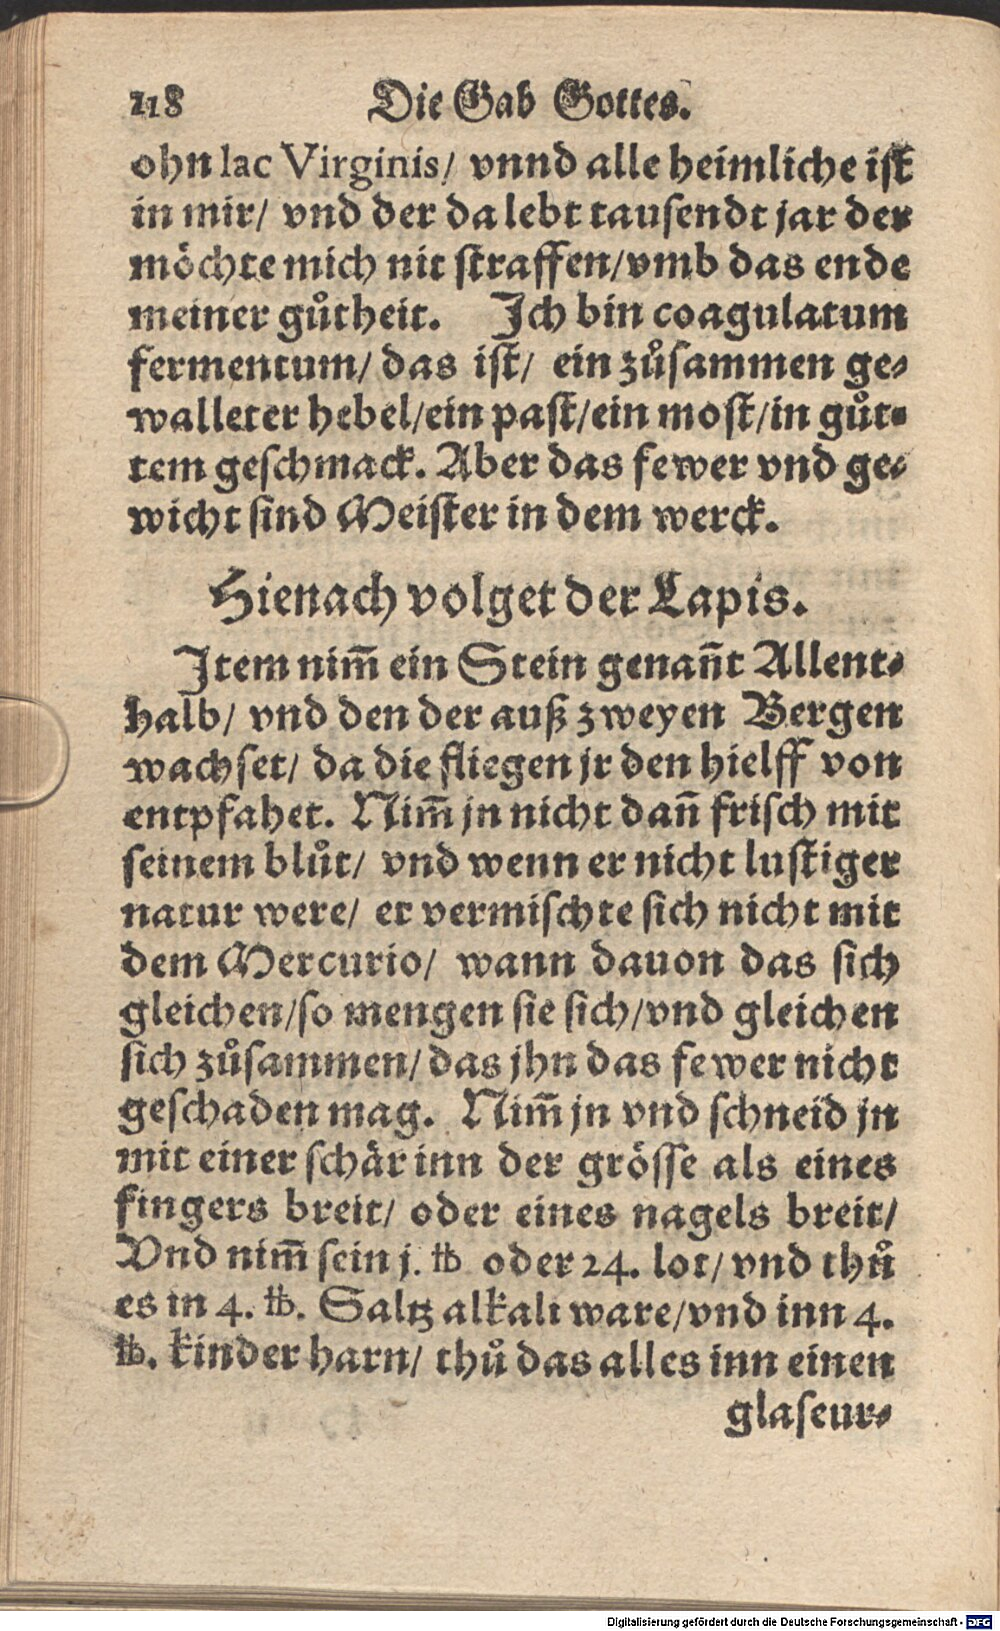 218 Die Gab Gottes.
ohn lac Virginis/ vnnd alle heimliche ist
in mir/ vnd der da lebt tausendt jar der
möchte mich nit straffen/vmb das ende
meiner gůtheit. Ich bin coagulatum
fermentum/ das ist/ ein zůsammen ge-
walleter hebel/ein past/ein most/in gůt-
tem geschmack. Aber das fewer vnd ge-
wicht sind Meister in dem werck.
Hienach volget der Lapis.
Item nim̃ ein Stein genañt Allent-
halb/ vnd den der auß zweyen Bergen
wachset/ da die fliegen jr den hielff von
entpfahet. Nim̃ jn nicht dañ frisch mit
seinem blůt/ vnd wenn er nicht lustiger
natur were/ er vermischte sich nicht mit
dem Mercurio/ wann dauon das sich
gleichen/so mengen sie sich/vnd gleichen
sich zůsammen/ das jhn das fewer nicht
geschaden mag. Nim̃ jn vnd schneid jn
mit einer schär inn der grösse als eines
fingers breit/ oder eines nagels breit/
Vnd nim̃ sein j. ℔ oder 24. lot/ vnd thů
es in 4. ℔. Saltz alkali ware/vnd inn 4.
℔. kinder harn/ thů das alles inn einen
glaseur-
Digitalisierung gefördert durch die Deutsche Forschungsgemeinschaft - DFG